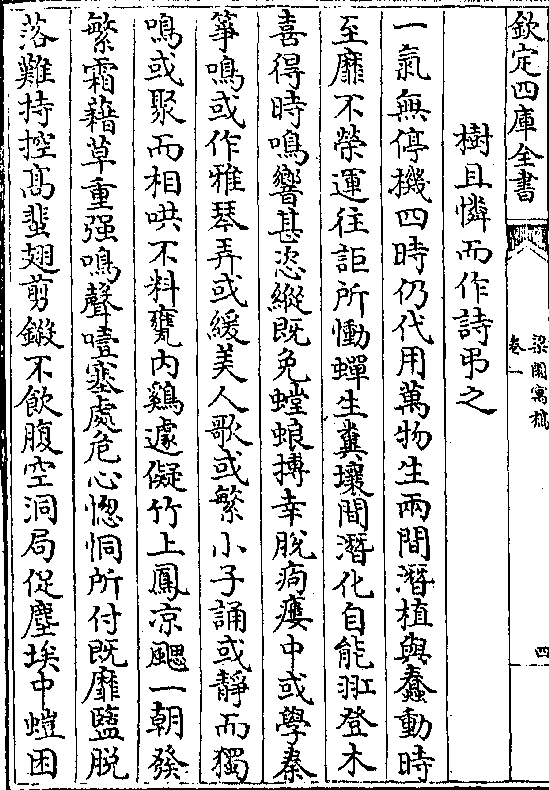 欽定四庫全書
梁園寓稿
卷一
四
樹且憐而作詩弔之
一氣無停機四時仍代用萬物生兩間潛植與蠢動時
至靡不榮運往詎所慟蟬生糞壤間潛化自能羾登木
喜得時鳴響甚恣縱既免螳蜋搏幸脫痀瘻中或學秦
箏鳴或作雅琴弄或緩美人歌或繁小子誦或靜而獨
鳴或聚而相哄不料甕內鷄遽儗竹上鳳凉颸一朝發
繁霜藉草重强鳴聲噎塞處危心惚恫所付既靡盬脫
落難持控髙蜚翅剪鎩不飲腹空洞局促塵埃中螘困